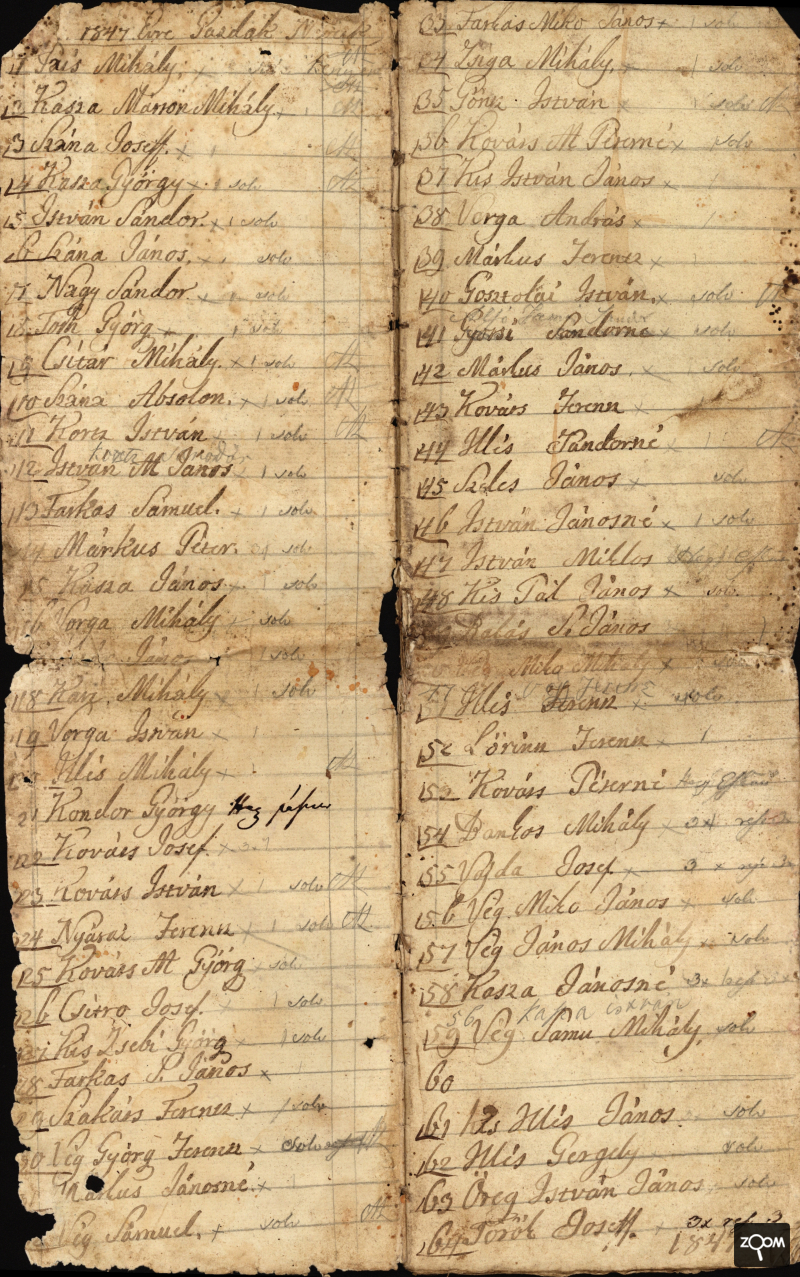 1847 Évre Gazdák
1 Pais Mihály. x
2 Kasza Marton Mihály x 1 M
3 Szána Joseff. x 1 M
4 Kasza György x 1 solv M
5 István Sándor. x 1 solv
6 Szána János. solv
7 Nagy Sándor x 1 solv
8 Toth Györg x 1 solv
9 Csitár Mihály. x 1 solv M
10 Szána Absolon. x 1 solv M
11 Korcz István x 1 solv M
12 István M János x 1 solv
13 Farkas Sámuel. x 1 solv
14 Márkus Péter. x solv
15 Kasza János x 1 solv
16 Varga Mihály solv
János 1 solv
18 Kari Mihály x 1 solv
19 Varga István x 1
20 Illés Mihály x M
21 Kondor György
22 Kováts Josef. x
23 Kováts István x 1 solv M
24 Nyárai Ferencz x 1 solv M
25 Kováts M Györg x solv
26 Csitro Josef. x 1 solv
27 Kis Zsebi Györg x 1 solv
28 Farkas P. János x
29 Szakáts Ferencz x 1 solv
30 Vég Györg Ferencz x solv M
Márkus Jánosné. x
Vég Sámuel. x solv M
33 Farkas Miko János x 1 solv
34 Zsiga Mihály x 1 solv
35 Göncz István x 1 solv M
36 Kováts M Péterné x 1 solv
37 Kis István János x 1
38 Varga András x 1
39 Márkus Ferencz x 1
40 Gosztolai István. x solv M
41 Gyossi Sandorné x solv
42 Márkus János. x solv
43 Kováts Ferencz x
44 Illés Sandorné x 1 M
45 Szeles János x solv
46 István Jánosné x 1 solv
47 István Miklos
48 Kis Pál János x solv
Balás P. János
Miko Mihály x
51 Illés Ferencz x solv
52 Lőrincz Ferencz x 1
53 Kováts Péterné
54 Bankos Mihály x 3x
55 Vajda Josef x 3 x
56 Vég Miko János x solv
57 Vég János Mihály x solv
58 Kasza Jánosné 3x
56 Kasza István
59 Vég Samu Mihály solv
60
61 Illés János. solv
62 Illés Gergely solv
63 Öreg István János solv
64 Török Joseff. x 3x
184
ZOOM